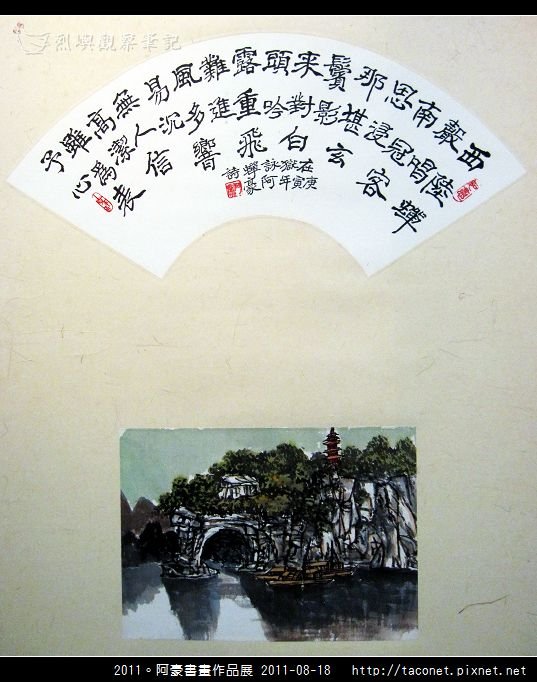 烈嶼觀察筆記
西陸蟬
聲唱
南冠客
思浸
那堪玄
鬢影
来對白
頭吟
露重飛
難進
風多響
易沉
無人信
高潔
雖為表
予心
庚寅年阿豪
在獄詠蟬詩
2011。阿豪書畫作品展 2011-08-18 http://taconet.pixnet.net